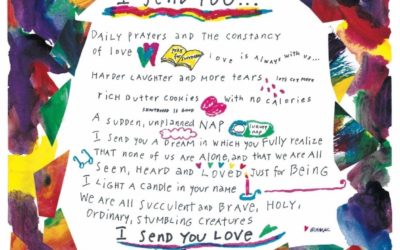 I SEND YOU...
DAILY PRAYERS AND THE CONSTANCY
of love
love is Always with us...
HARDER LAUGHTER AND MORE TEARS lets cry more
rich Butter cookies with no calories
SHORTBREAD IS GOOD
A sudden, unplanned NAP
I send you a Dream in which you fully realize
That none of us are Alone, and that we are All
Seen, Heard and Loved Just for Being
I LIGHT A CANDLE IN YOUR NAME
We Are All Succulent and BRAVE, HOLY,
Ordinary, stumbling creatures
I SEND YOU LOVE